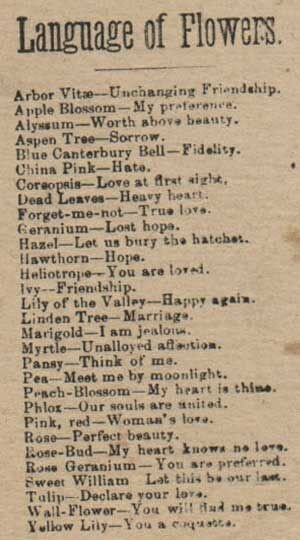 Language of Flowers.
Arbor Vitæ—Unchanging Friendship.
Apple Blossom—My preference.
Alyssum—Worth above beauty.
Aspen Tree—Sorrow.
Blue Canterbury Bell—Fidelity.
China Pink—Hate.
Coreopsis—Love at first sight.
Dead Leaves—Heavy heart.
Forget-me-not—True love.
Geranium—Lost hope.
Hazel—Let us bury the hatchet.
Hawthorn—Hope.
Heliotrope—You are loved.
Ivy—Friendship.
Lily of the Valley—Happy again.
Linden Tree—Marriage.
Marigold—I am jealous.
Myrtle—Unalloyed affection.
Pansy—Think of me.
Pea—Meet me by moonlight.
Peach-Blossom—My heart is thine.
Phlox—Our souls are united.
Pink, red—Woman's love.
Rose—Perfect beauty.
Rose-Bud—My heart knows no love.
Rose Geranium—You are preferred.
Sweet William Let this be our last.
Tulip—Declare your love.
Wall-Flower—You will find me true.
Yellow Lily—You a coquette.